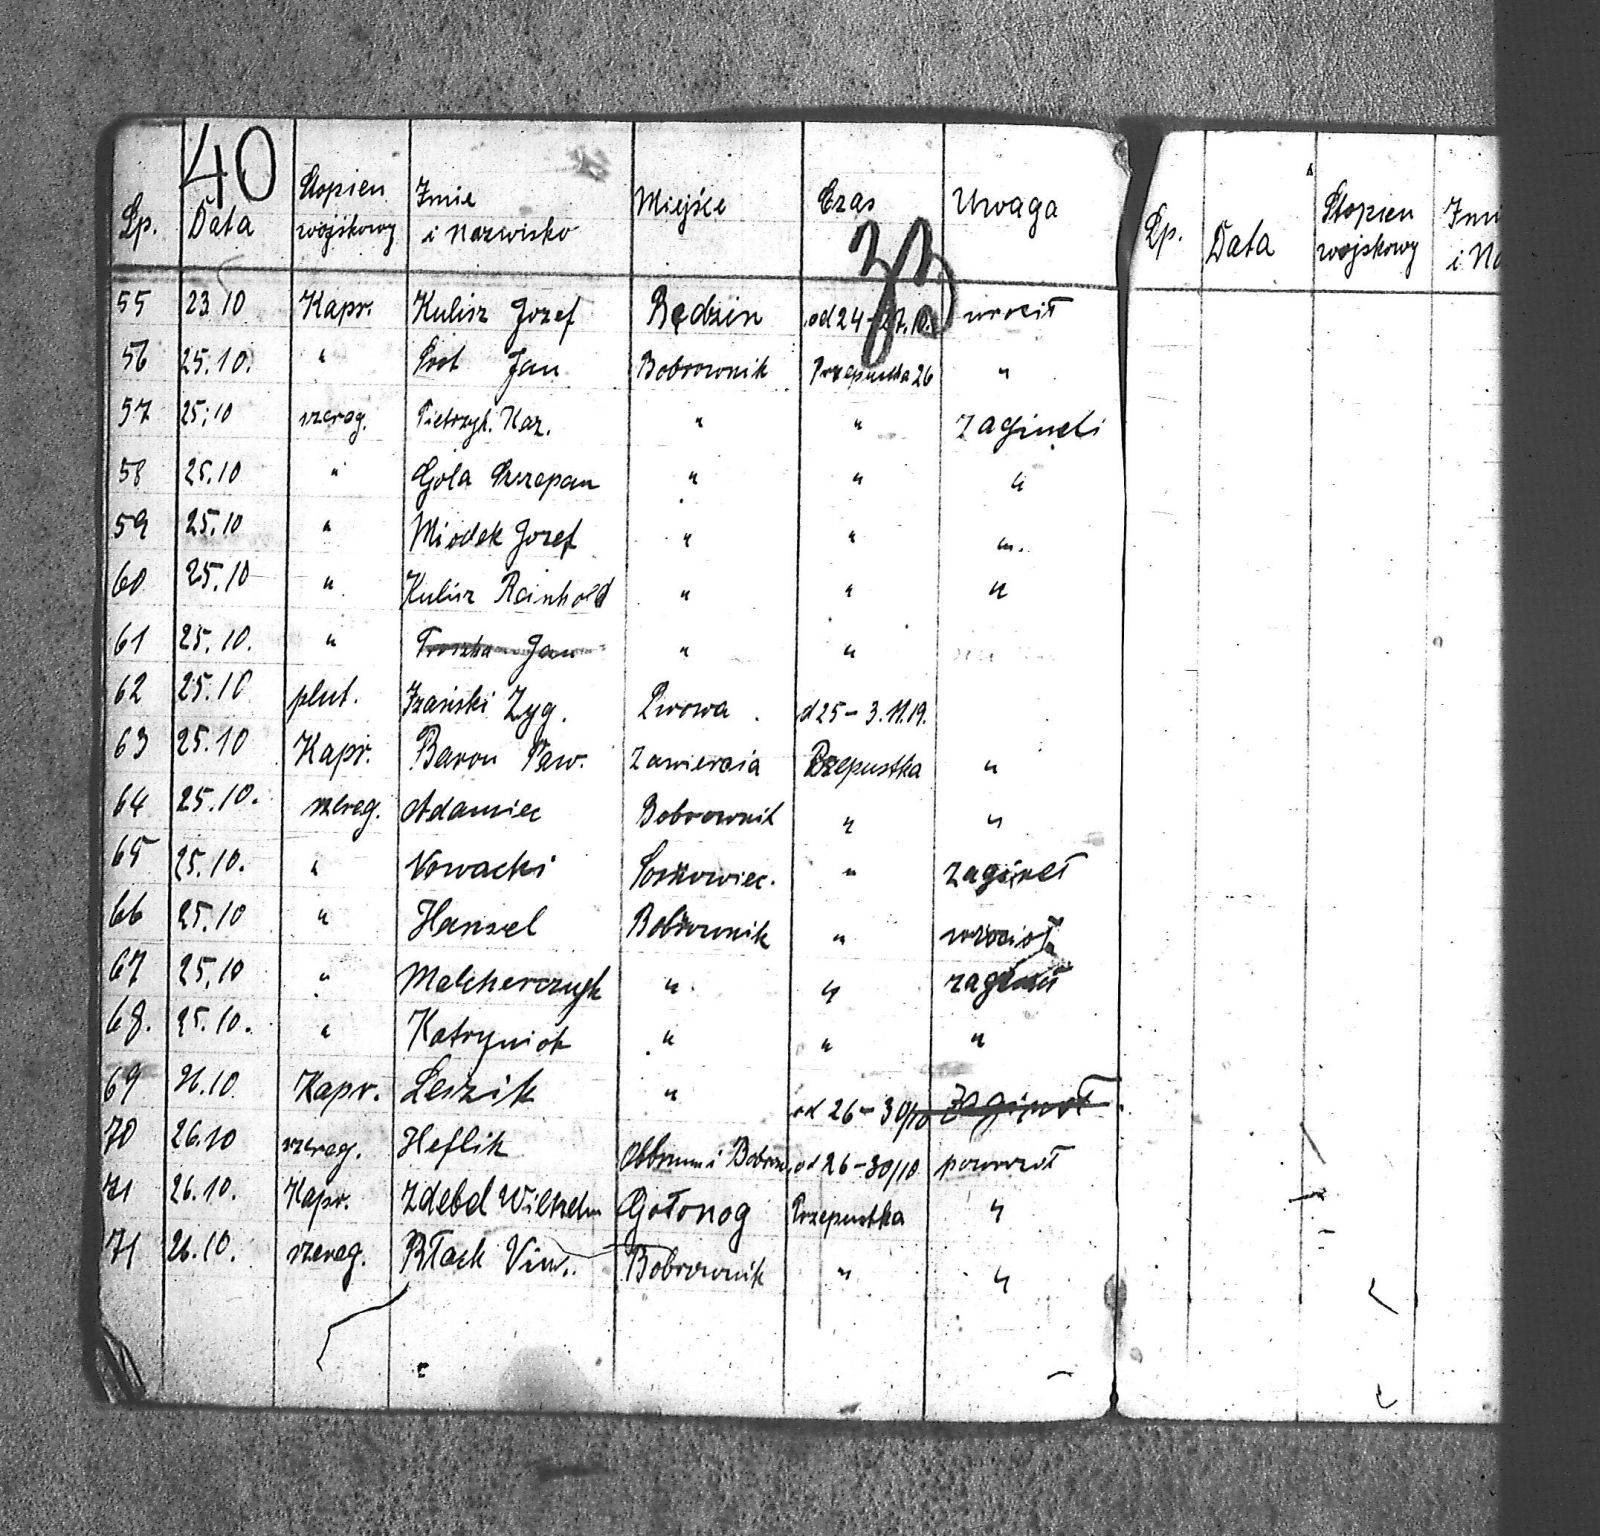 40
Lp. Data Stopien wojskowy Imie i Nazwisko Miejsce Czas Uwaga
33
55 23.10 Kapr. Kulisz Jozef Będzin od 24-27.10. wrocił
56 25.10. " Prot Jan Bobrownik Przepustka 26 "
57 25.10 szereg. Pietrzyk. Kaz. " " Zagineli
58 25.10 " Gola Szczepan " " "
59 25.10 " Miodek Jozef " " "
60 25.10 " Kulisz Reinhold " " "
61 25.10. " Troszka Jan " "
62 25.10 plut. Izański Zyg. Lwowa. od 25-3.11.19.
63 25.10 Kapr. Baron Paw. Zawiercia Przepustka "
64 25.10. szereg. Adamiec Bobrownik " "
65 25.10. " Nowacki Sosnowiec. " zagineł
66 25.10 " Hansel Bobrownik " wrocioł
67 25.10 " Melcherczyk " " zaginuł
68. 25.10. " Katryniok " " "
69 26.10 Kapr. Leszik " od 26-30/10 Zaginoł
70 26.10 szereg. Heflik Bobrow. od 26-30/10 powrocoł
71 26.10. Kapr. Zdebel Wilhelm Gołonog Przepustka "
71 26.10. szereg. Błack Vinc. Bobrownik " "
Lp. Data Stopien wojskowy Imi i Na